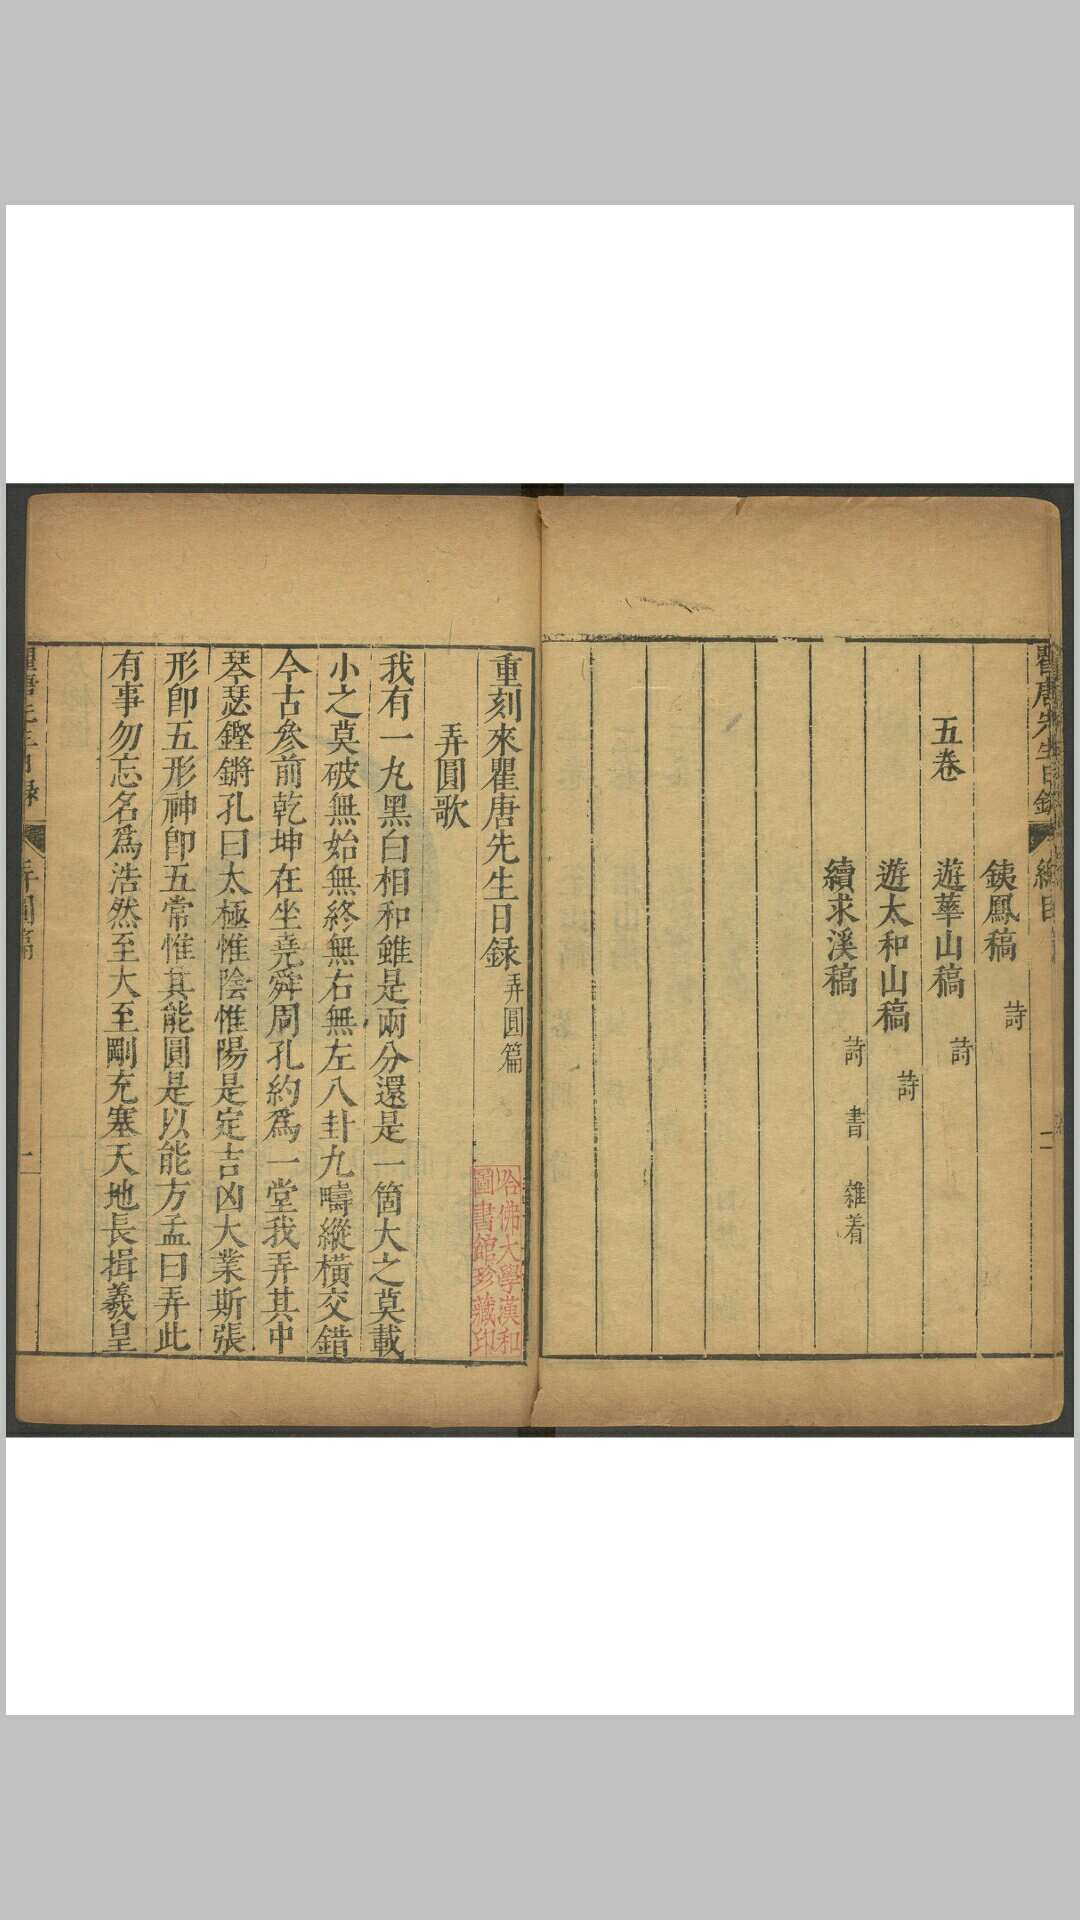 瞿唐先生日錄
總目
二
鋏鳳稿 詩
五卷
遊華山稿 詩
遊太和山稿 詩
續求溪稿 詩 書 雜着
重刻來瞿唐先生日録 弄圓篇
哈佛大學漢和
圖書館珍藏印
弄圓歌
我有一丸黑白相和雖是兩分還是一箇大之莫載
小之莫破無始無終無右無左八卦九疇縱橫交錯
今古參前乾坤在坐堯舜周孔約為一堂我弄其中
琴瑟鏗鏘孔曰太極惟陰惟陽是定吉凶大業斯張
形卽五形神卽五常惟其能圓是以能方孟曰弄此
有事勿忘名為浩然至大至剛充塞天地長揖羲皇
瞿唐先生日錄
弄圓篇
一